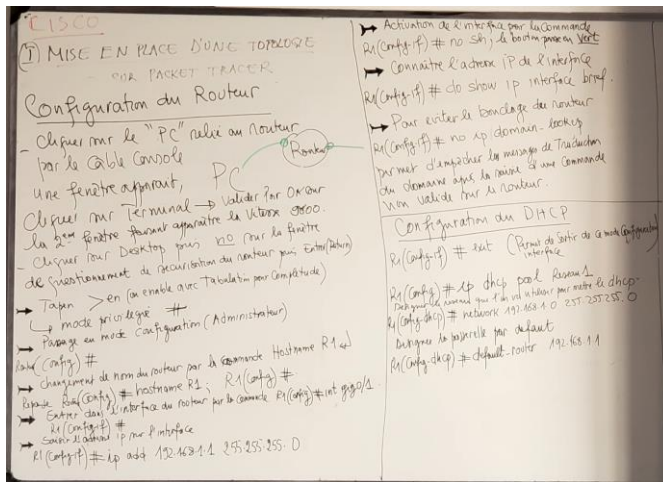 CISCO
(I) MISE EN PLACE D'UNE TOPOLOGIE
SUR PACKET TRACER
Configuration du Routeur
- Cliquer sur le "PC" relié au routeur
par le Câble Console
une fenêtre apparait,
PC
Router
Cliquer sur Terminal → Valider Par OK sur
la 2ème fenêtre faisant apparaître la Vitesse 9600.
- Cliquer sur Desktop puis no sur la fenêtre
de questionnement de securisation du routeur puis Enter (Return)
→ Taper > en (ou enable avec Tabulation pour Complétude)
↳ mode privilegié #
→ Passage en mode Configuration (Administrateur)
Router (Config) #
→ Changement de nom du routeur par la commande Hostname R1
(Config) # hostname R1 ; R1 (Config) #
→ Entrer dans l'interface du routeur par la commande R1 (Config) # int gig0/1
R1 (Config-if) #
→ Saisir l'adresse ip sur l'interface
R1 (Config-if) # ip add 192.168.1.1 255.255.255.0
→ Activation de l'interface par la Commande
R1 (Config-if) # no sh ; le bouton passe au Vert
→ Connaître l'adresse iP de l'interface
R1 (Config-if) # do show ip interface brief.
→ Pour eviter le bondage du routeur
R1 (Config-if) # no ip domain-lookup
permet d'empêcher les messages de Traduction
du domaine après la saisie d'une commande
non valide sur le routeur.
Configuration du DHCP
R1 (Config-if) # exit (Permet de Sortir de ce mode Configuration)
interface
R1 (Config) # ip dhcp pool Reseau1
Designer le reseau que l'on va utiliser pour mettre le dhcp.
R1 (Config-dhcp) # network 192.168.1.0 255.255.255.0
Designer la passerelle par defaut
R1 (Config-dhcp) # default-router 192.168.1.1